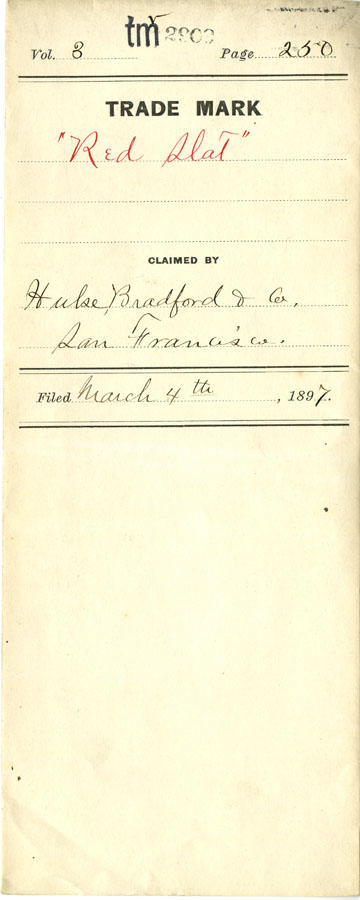 tm 2909
Vol. 3 Page 250
TRADE MARK
"Red Slat"
CLAIMED BY
Hulse, Bradford & Co.
San Francisco.
Filed March 4th, 1897.